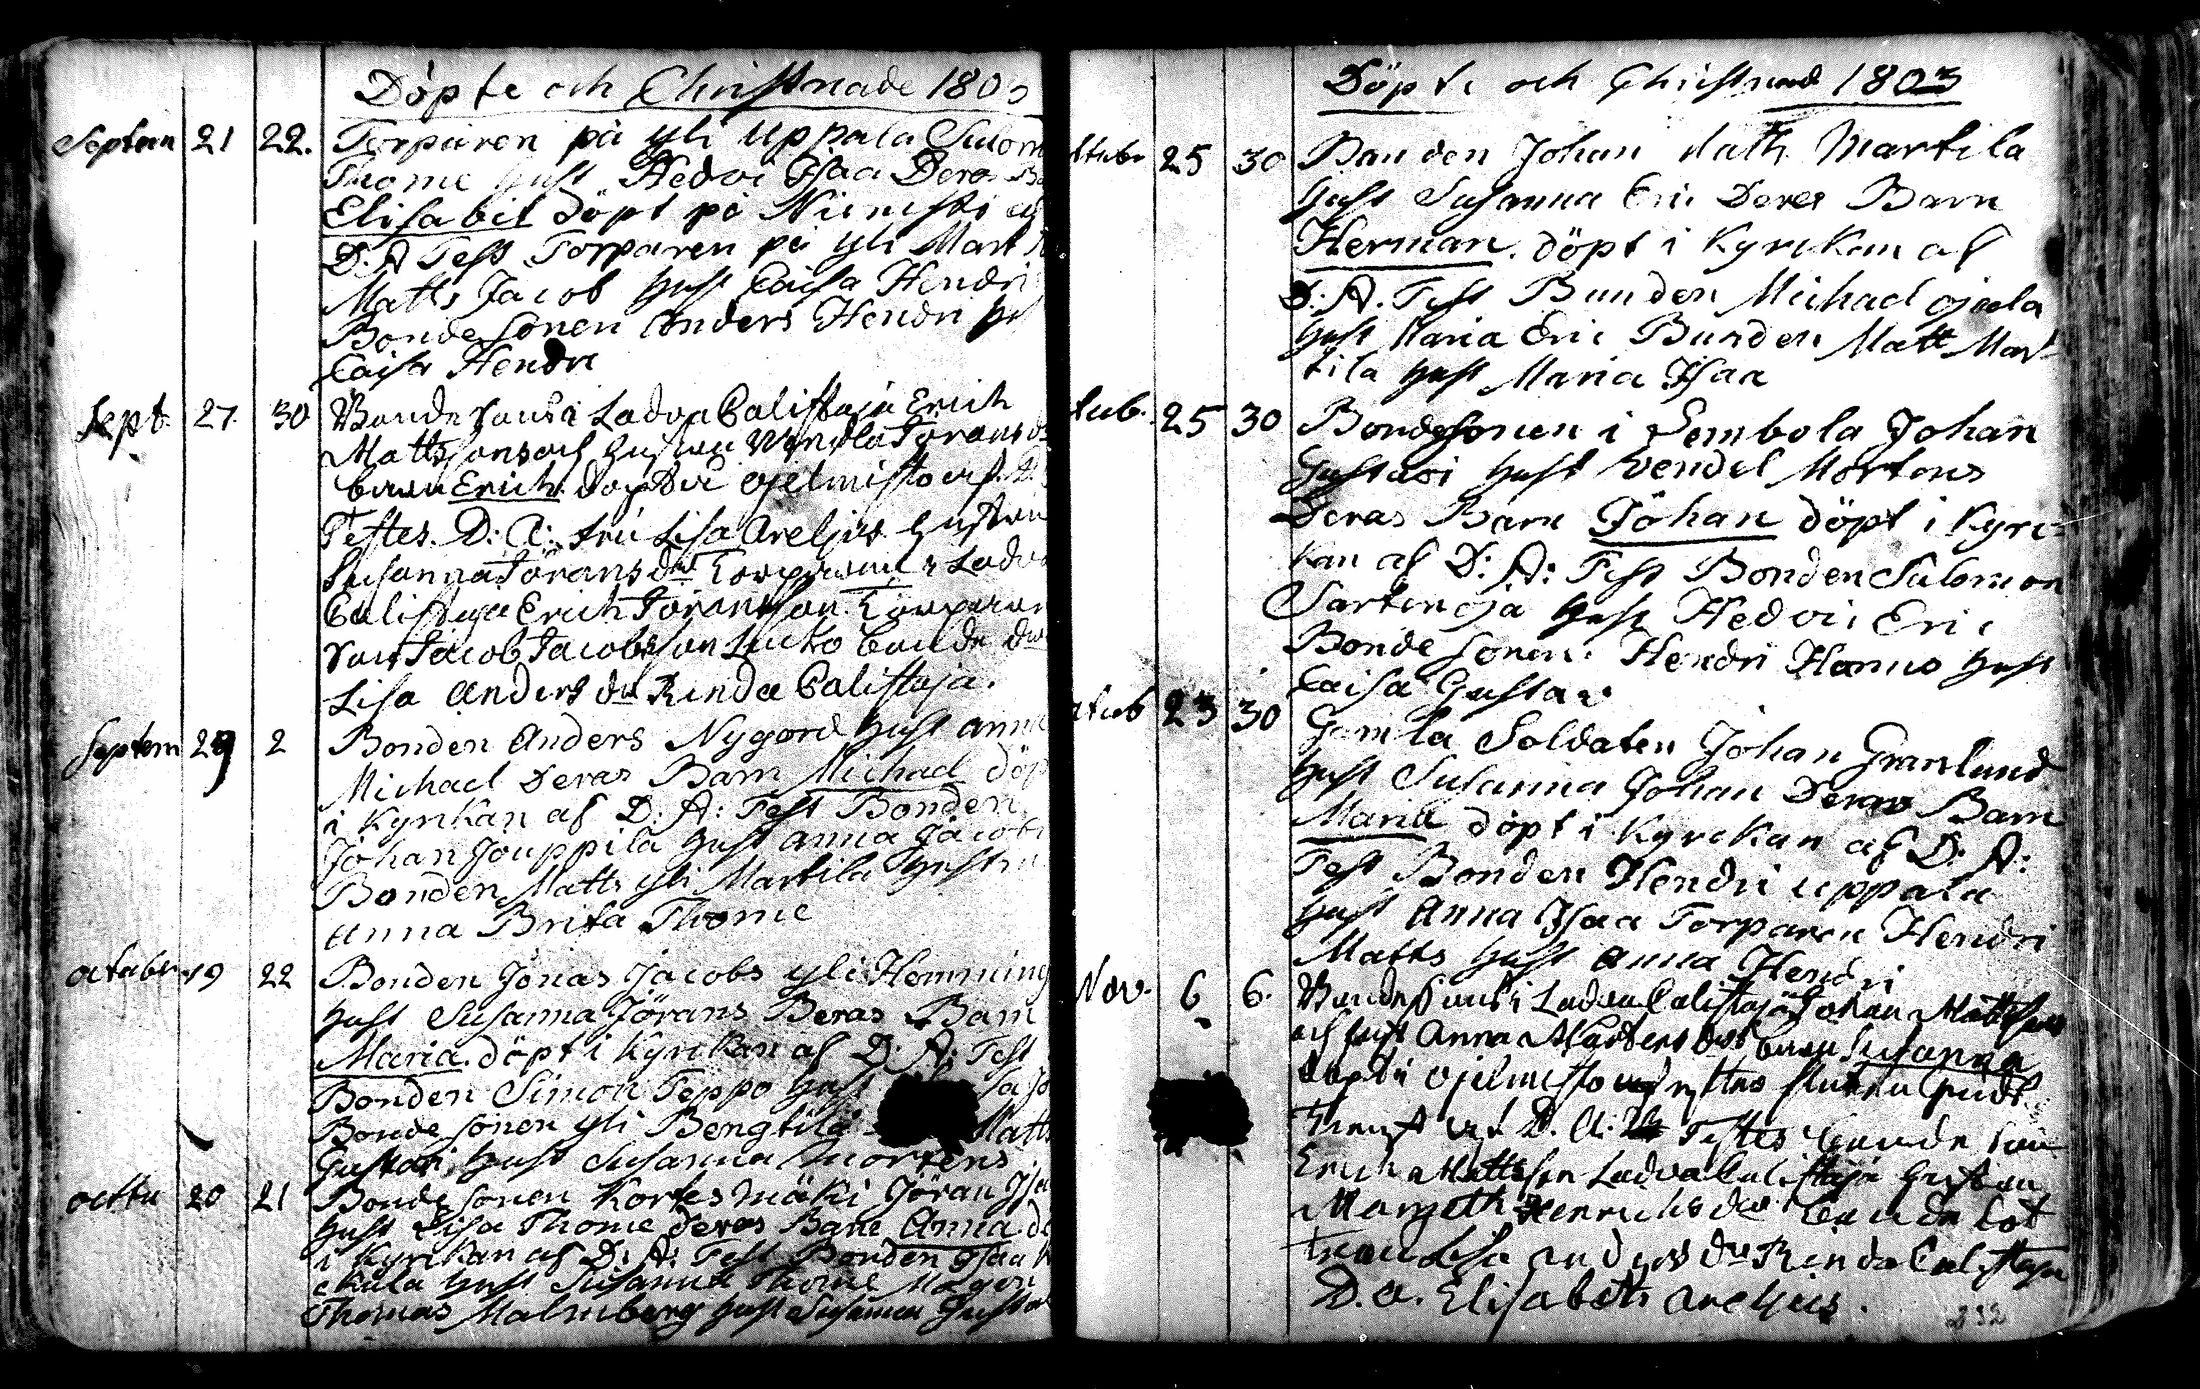 Döpte och Christnade 1803
Septem 21 22. Torparen på yli Uppala Salom
Thome hust Hedvi Isaa Deras Ba
Elisabet döpt på
D: A Test Torparen på yli Mart
Matts Jacob hust Caisa Hendri
Bondesonen Anders Hendri hu
Caisa Hendri
Sept. 27. 30 Ladva Calistaja Erich
Mattssons och hustru Jörans
barn Erich döpt i af D.
Testes. D: A: fru Lisa Areljus hustru
Susanna Jörans dr Ladva
Calistaja Erich Jöransson
son Jacob Jacobsson bonde dr
Lisa Anders dr Rinda Calistaja.
Septem 29 2 Bonden Anders Nygord hust Anna
Michael Deras Barn Michael döp
i Kyrkan af D: A: Test Bonden
Johan Jouppila hust Anna Jacobs
Bonden Matts yli Martila hustru
Anna Brita Thome
octobr 19 22 Bonden Jonas Jacobs yli Hemming
hust Susanna Jörans Deras Barn
Maria döpt i Kyrkan af D: A: Test
Bonden Simon Teppo hust
Bonde sonen yli Bengtila Matts
Gustavi hust Susanna Mortens
octtu 20 21 Bonde sonen Kortesmäki Jöran
hust Lisa Thome Deras Barn Anna dö
i Kyrkan af D: A: Test Bonden Isaa
hust Susanna Thome
Thomas Malmberg hust Susanna Gusta
Döpte och Christnad 1803
ctubr 25 30 Bonden Johan Math Martila
hust Susanna Eric Deras Barn
Herman. döpt i Kyrckan af
D: A. Test Bunden Michael ojala
hust Maria Eric Bunden Matt Mar-
tila hust Maria Isaa
tub. 25 30 Bondesonen i Sembola Johan
Gustavi hust Vendel Mortens
Deras Barn Johan döpt i Kyrc-
kan af D: A: Test Bonden Salomon
hust Hedvi Eric
Bonde sonen Hendri Hannus hust
Caisa Gustav
ctub 23 30 Gamla Soldaten Johan Granlund
hust Susanna Johan Deras Barn
Maria döpt i Kyrckan af D: A:
Test Bonden Hendri Uppala
hust Anna Isaa Torparen Hendri
Matts hust Anna Hendri
Nov. 6 6. Ladva Calistaja Johan Mattsons
och hust Anna Mårtens dr barn Susanna
döpt i
af D. A: Testes bonde son
Erich Mattsson Ladva Calistaja hustru
Margeth Henrichs dr bonde
Lisa Anders dr Rinda Calistaja
D. A. Elisabeth Areljus.
232